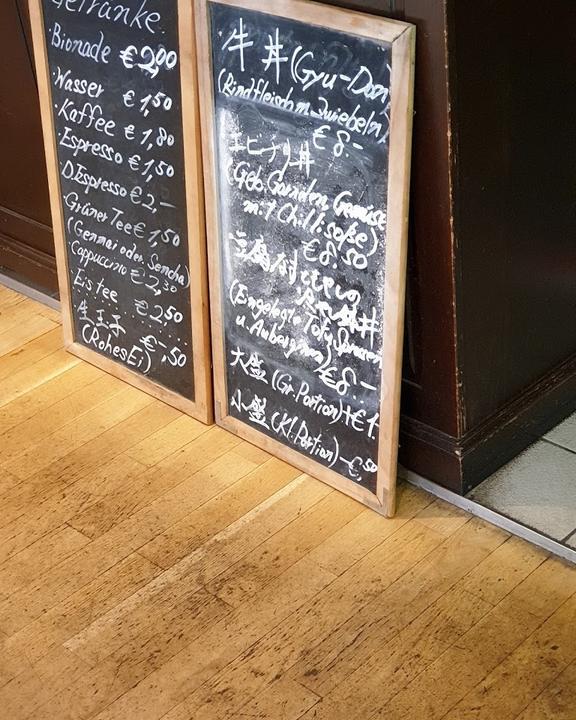 Getränke
Bionade €2,00
·Wasser €1,50
·Kaffee €1,80
·Espresso €1,50
D.Espresso €2,—
·Grüner Tee €1,50
(Genmai oder Sencha)
·Cappuccino €2,30
·Eistee €2,50
生玉子 €-,50
(Rohes Ei)
·牛丼 (Gyu-Don)
(Rindfleisch m. Zwiebeln)
€8.-
エビチリ丼
(Geb. Garnelen, Gemüse
m.t Chillisoße)
€8.50
(Eingelegte Tofu,
u. Auberginen) €8.-
大盛 (Gr.Portion)+€1.
小盛 (Kl.Portion)-€,50